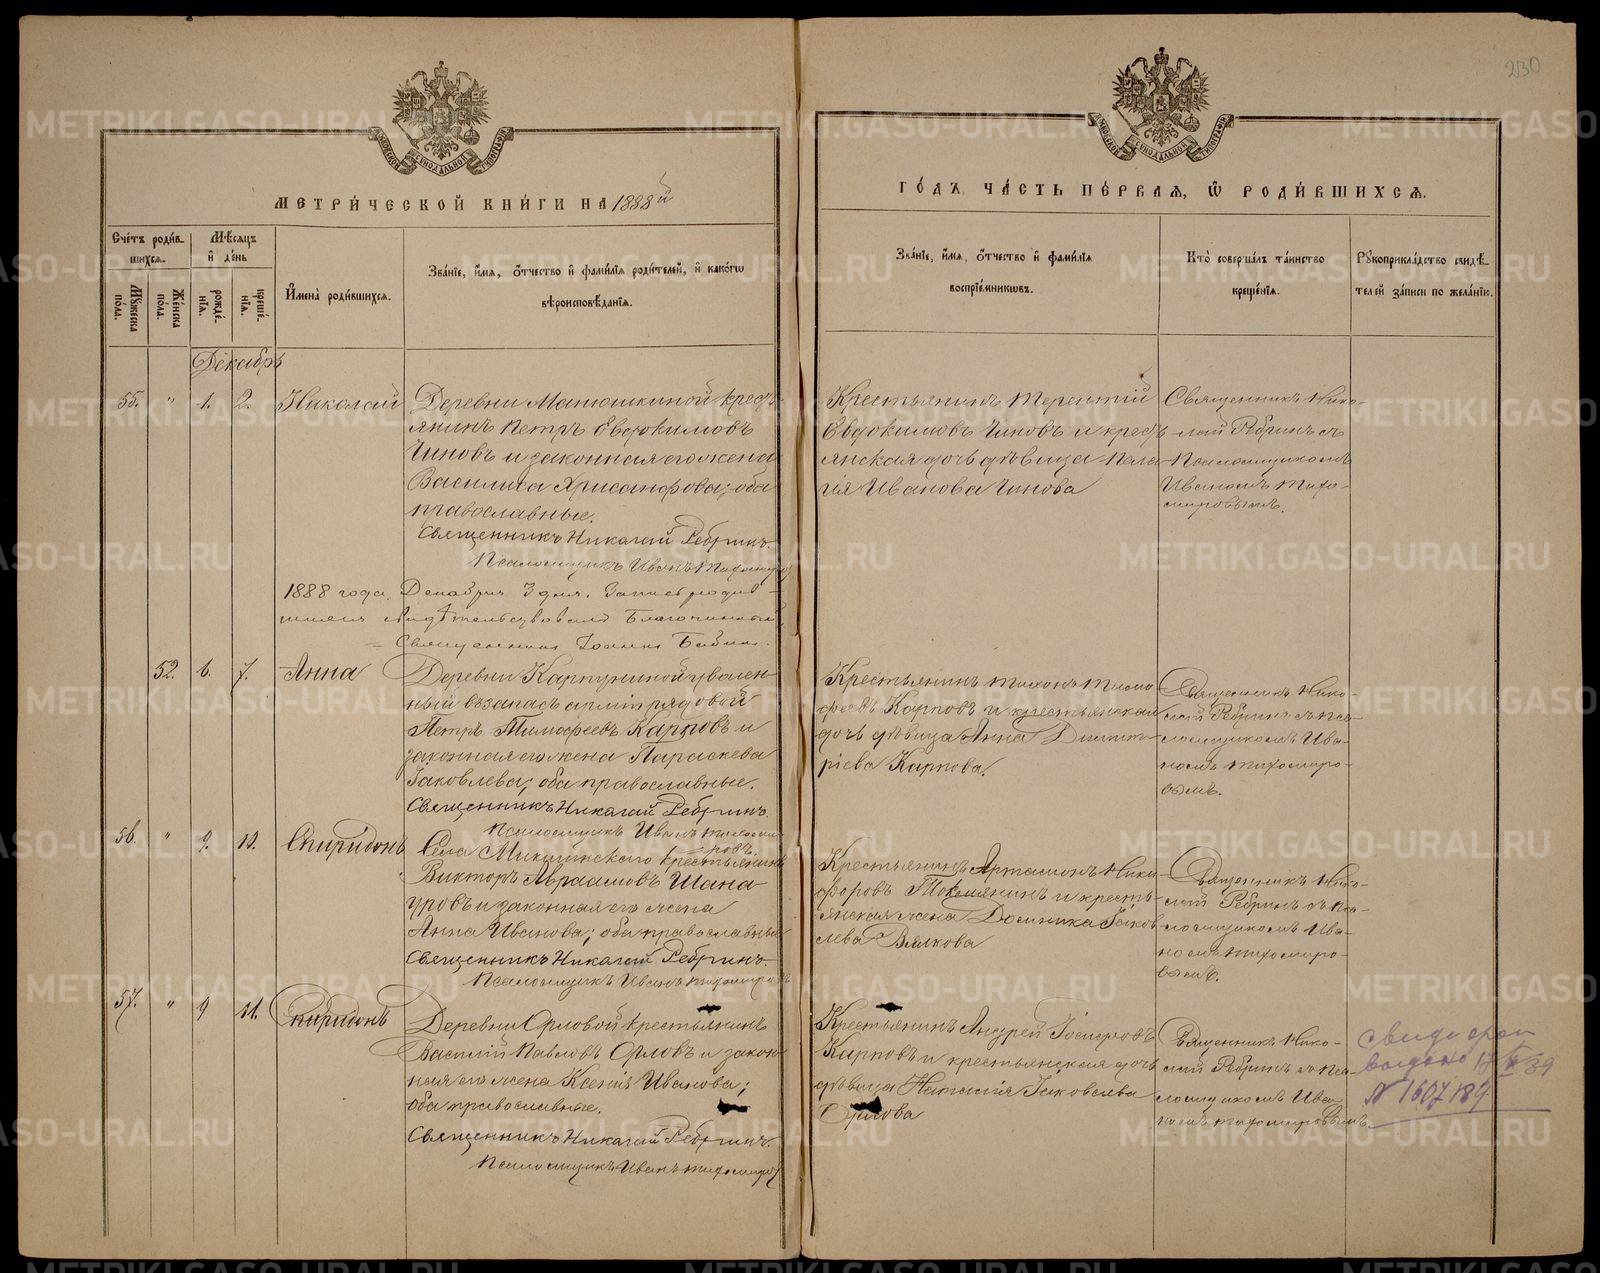 230
МЕТРИ́ЧЕСКОЙ КНИ́ГИ НА 1888й
ГО́ДЪ, ЧА́СТЬ ПЕ́РВАЯ, Ѡ РОДИ́ВШИХСЯ.
Сче́тъ роди́в-
шихся.
Мꙋ́жеска по́ла.
Же́нска по́ла.
Мѣ́сяцъ и де́нь
рожде́-
нїя.
креще́-
нїя.
И҆мена̀ роди́вшихся.
Зва́нїе, и҆́мя, ѻ҆́тчество и҆ фами́лїя роди́телей, и҆ како́гѡ
вѣроисповѣ́данїя.
Зва́нїе, и҆́мя, ѻ҆́тчество и҆ фами́лїя
воспрїе́мникѡвъ.
Кто̀ соверша́лъ та́инство
креще́нїя.
Рꙋкоприкла́дство свидѣ́-
телей за́писи по жела́нїю.
Декабрь
55. " 1. 2. Николай
Деревни Матюшкиной крестъ-
янинъ Петръ Евдокимовъ
Чиновъ и законная его жена
Василиса Хрисанфова; оба
православные.
Священникъ Николай Ребринъ.
Псаломщикъ Иванъ Тихомиров
Крестьянинъ Терентій
Евдокимовъ Чиновъ и кресть-
янская дочь дѣвица Пела-
гія Иванова Чинова
Священникъ Нико-
лай Ребринъ съ
Псаломщикомъ
Иваномъ Тихо-
мировымъ.
1888 года. Декабря 3 дня. Запись родив-
шихся свидѣтельствовалъ Благочинный
= Священникъ Іоаннъ Бабин.
52. 6. 7. Анна
Деревни Карпушиной уволен-
ный въ запасъ арміи рядовой
Петръ Тимофеевъ Карповъ и
законная его жена Параскева
Іаковлева; оба православные.
Священникъ Николай Ребринъ.
Псаломщикъ Иванъ Тихоми-
ровъ.
Крестьянинъ Тихонъ Тимо-
феевъ Карповъ и крестьянская
дочь дѣвица Анна Димит-
ріева Карпова.
Священникъ Нико-
лай Ребринъ съ пса-
ломщикомъ Ива-
номъ Тихомиро-
вымъ.
56. " 9. 11. Спиридонъ
Села Микшинского крестьянинъ
Викторъ Авраамовъ Шана-
уровъ и законная его жена
Анна Иванова; оба православные
Священникъ Николай Ребринъ.
Псаломщикъ Иванъ Тихомировъ
Крестьянинъ Артамонъ Ники-
форовъ и кресть-
янская жена Домника Іаков-
лева Вялкова
Священникъ Нико-
лай Ребринъ съ пса-
ломщикомъ Ива-
номъ Тихомиро-
вымъ.
57. " 9 11. Спиридонъ
Деревни Орловой крестьянинъ
Василій Павловъ Орловъ и закон-
ная его жена Ксенія Иванова;
оба православные.
Священникъ Николай Ребринъ.
Псаломщикъ Иванъ Тихомиров
Крестьянинъ Андрей Іосифовъ
Карповъ и крестьянская дочь
дѣвица Наталія Іаковлева
Орлова
Священникъ Нико-
лай Ребринъ съ пса-
ломщикомъ Ива-
номъ Тихомировымъ.
выдано
N 1607189
METRIKI.GASO-URAL.RU